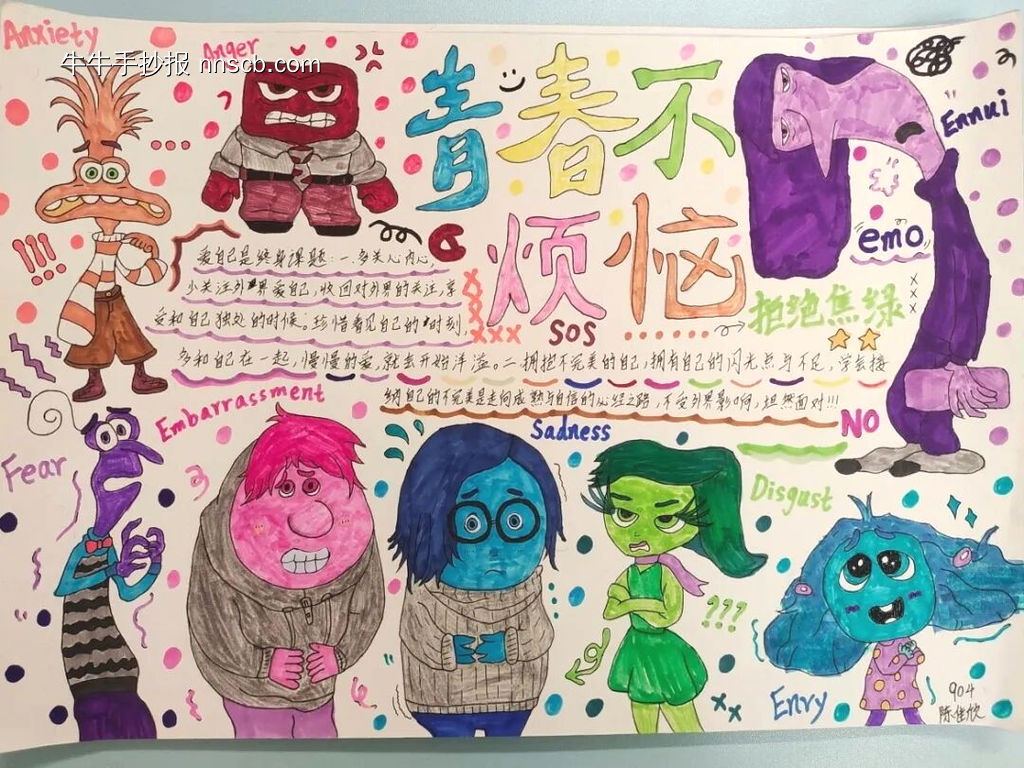 Anxiety
牛牛手抄报 nnscb.com
Anger
青春不
烦恼
Ennui
emo
!!!
爱自己是终身课题:一.多关心内心,
少关注外界爱自己,收回对外界的关注,享
受和自己独处的时候。珍惜看见自己的时刻,
多和自己在一起,慢慢的爱,就去开始洋溢。二.拥抱不完美的自己,拥有自己的闪光点与不足,学会接
纳自己的不完美是走向成熟与自信的必经之路,不受外界影响,坦然面对!!!
xxx
SOS
拒绝焦绿
NO
Embarrassment
Sadness
Fear
Disgust
???
Envy
904
陈佳欣